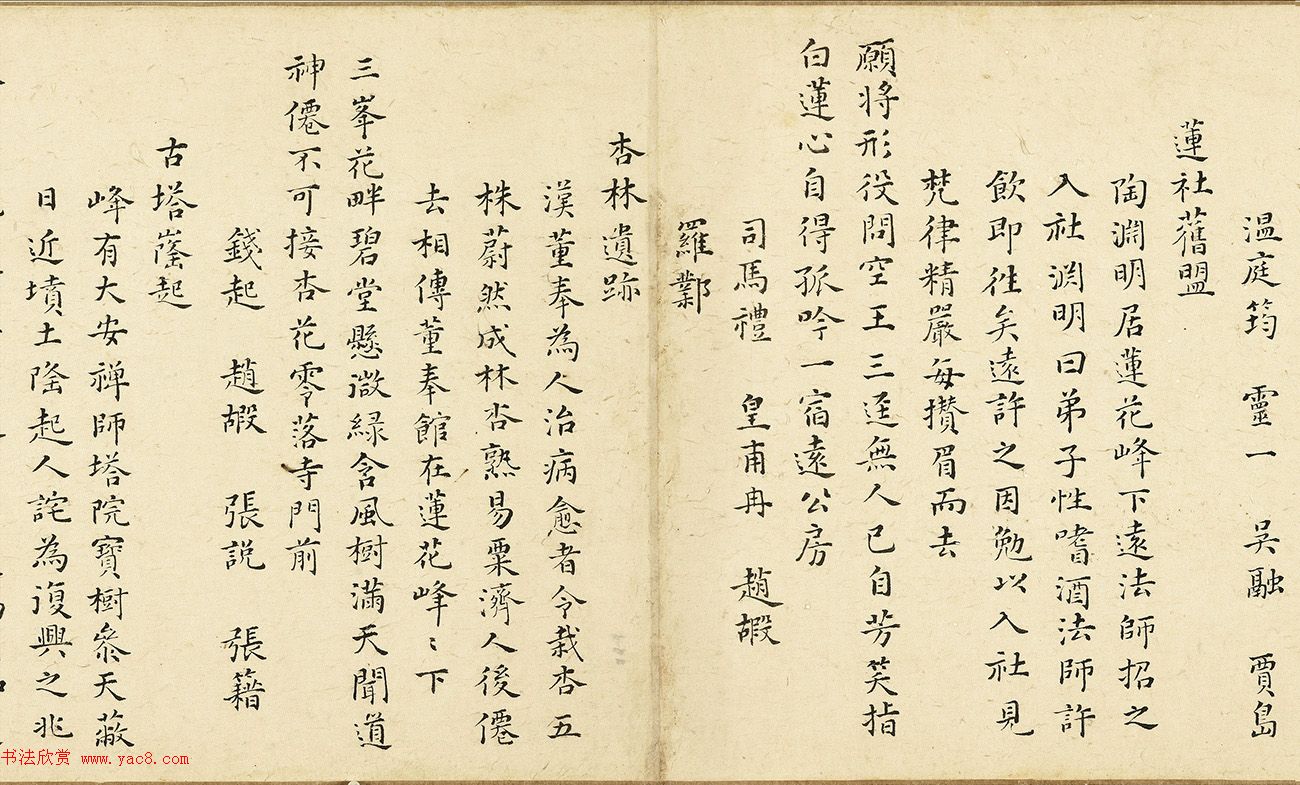 溫庭筠 靈一 吳融 賈島
蓮社舊盟
陶淵明居蓮花峰下遠法師招之
入社淵明曰弟子性嗜酒法師許
飲即往矣遠許之因勉以入社見
梵律精嚴每攢眉而去
願將形役問空王三逕無人已自芳笑指
白蓮心自得孤吟一宿遠公房
司馬禮 皇甫冉 趙嘏
羅鄴
杏林遺跡
漢董奉為人治病愈者令栽杏五
株蔚然成林杏熟易粟濟人後僊
去相傳董奉館在蓮花峰〻下
三峯花畔碧堂懸微綠含風樹滿天聞道
神僊不可接杏花零落寺門前
錢起 趙嘏 張說 張籍
古塔窿起
峰有大安禅師塔院寶樹參天蔽
日近墳土隆起人詫為復興之兆
书法欣赏 www.yac8.com